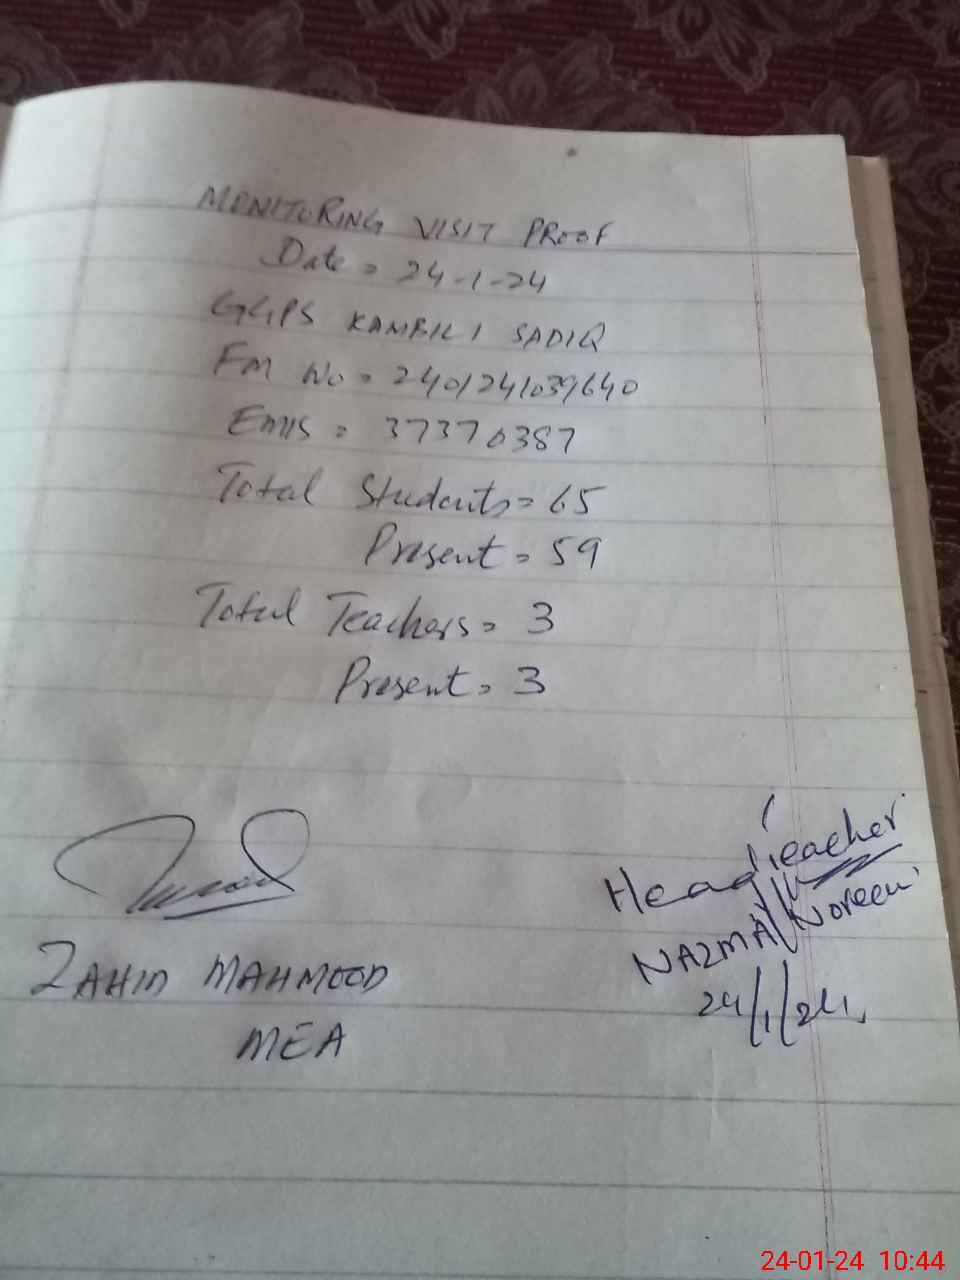 MONITORING VISIT PROOF
Date = 24-1-24
GGPS KAMBILI SADIQ
FM No = 2401241039640
EMIS = 37370387
Total Students = 65
Present = 59
Total Teachers = 3
Present = 3
Headteacher
NAZMA Noreen
24/1/24
ZAHID MAHMOOD
MEA
24-01-24 10:44